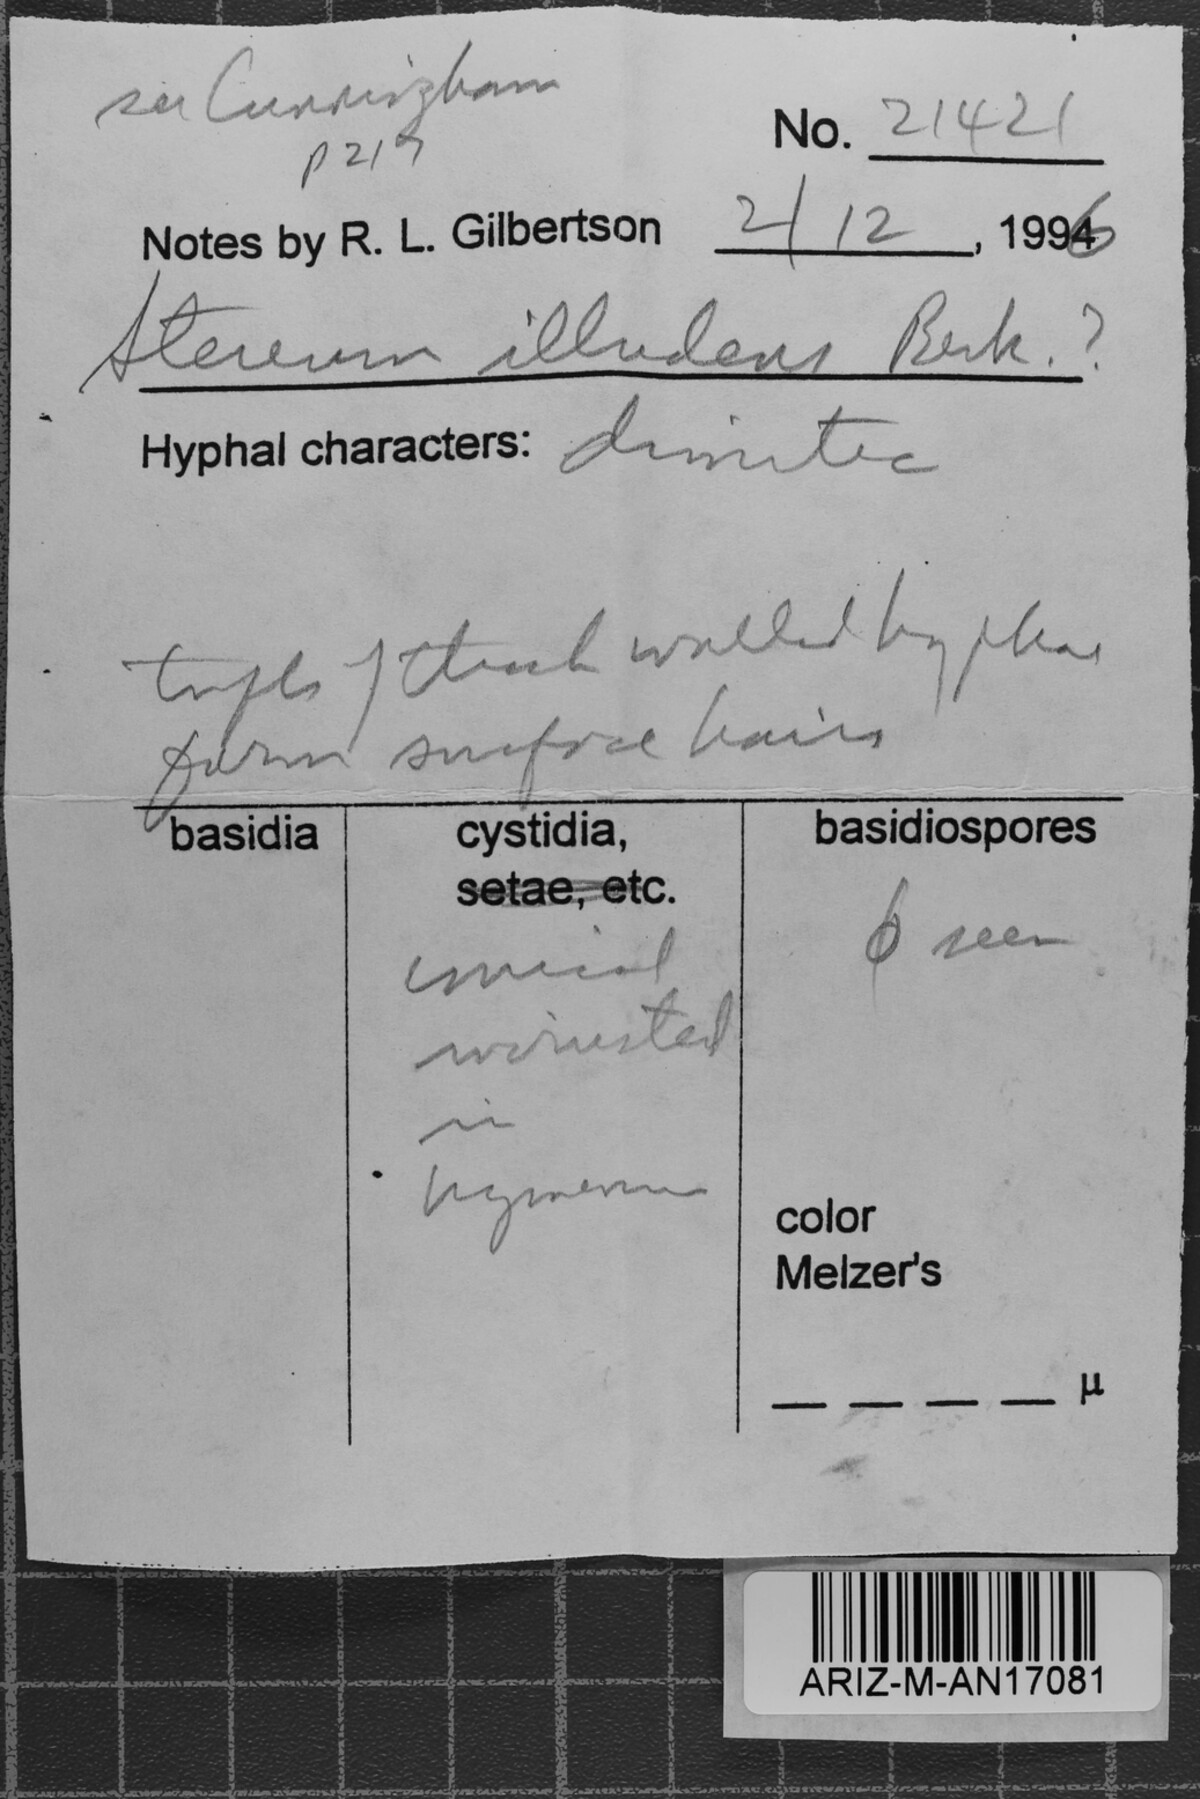 see Cunningham
p 219
No. 21421
Notes by R. L. Gilbertson 2/12, 1996
Stereum illudens Berk.?
Hyphal characters: dimitic
tufts of thick walled hyphae
form surface hairs
basidia
cystidia,
setae, etc.
conical
incrusted
in
hymenium
basidiospores
0 seen
color
Melzer's
_ _ _ _ µ
ARIZ-M-AN17081